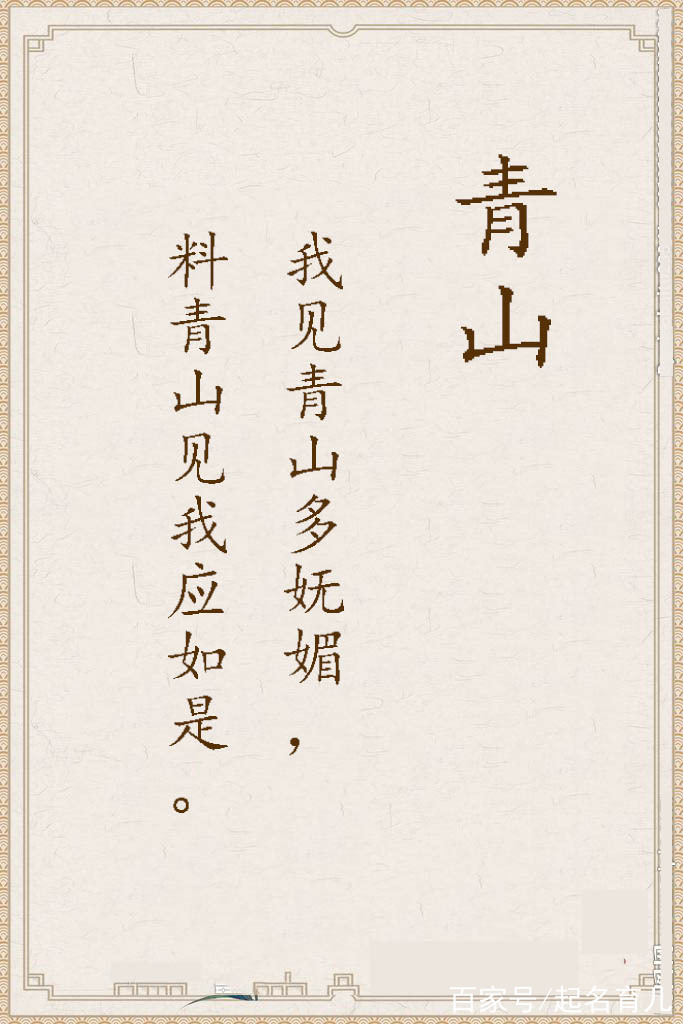 青山
我见青山多妩媚，
料青山见我应如是。
百家号/起名育儿